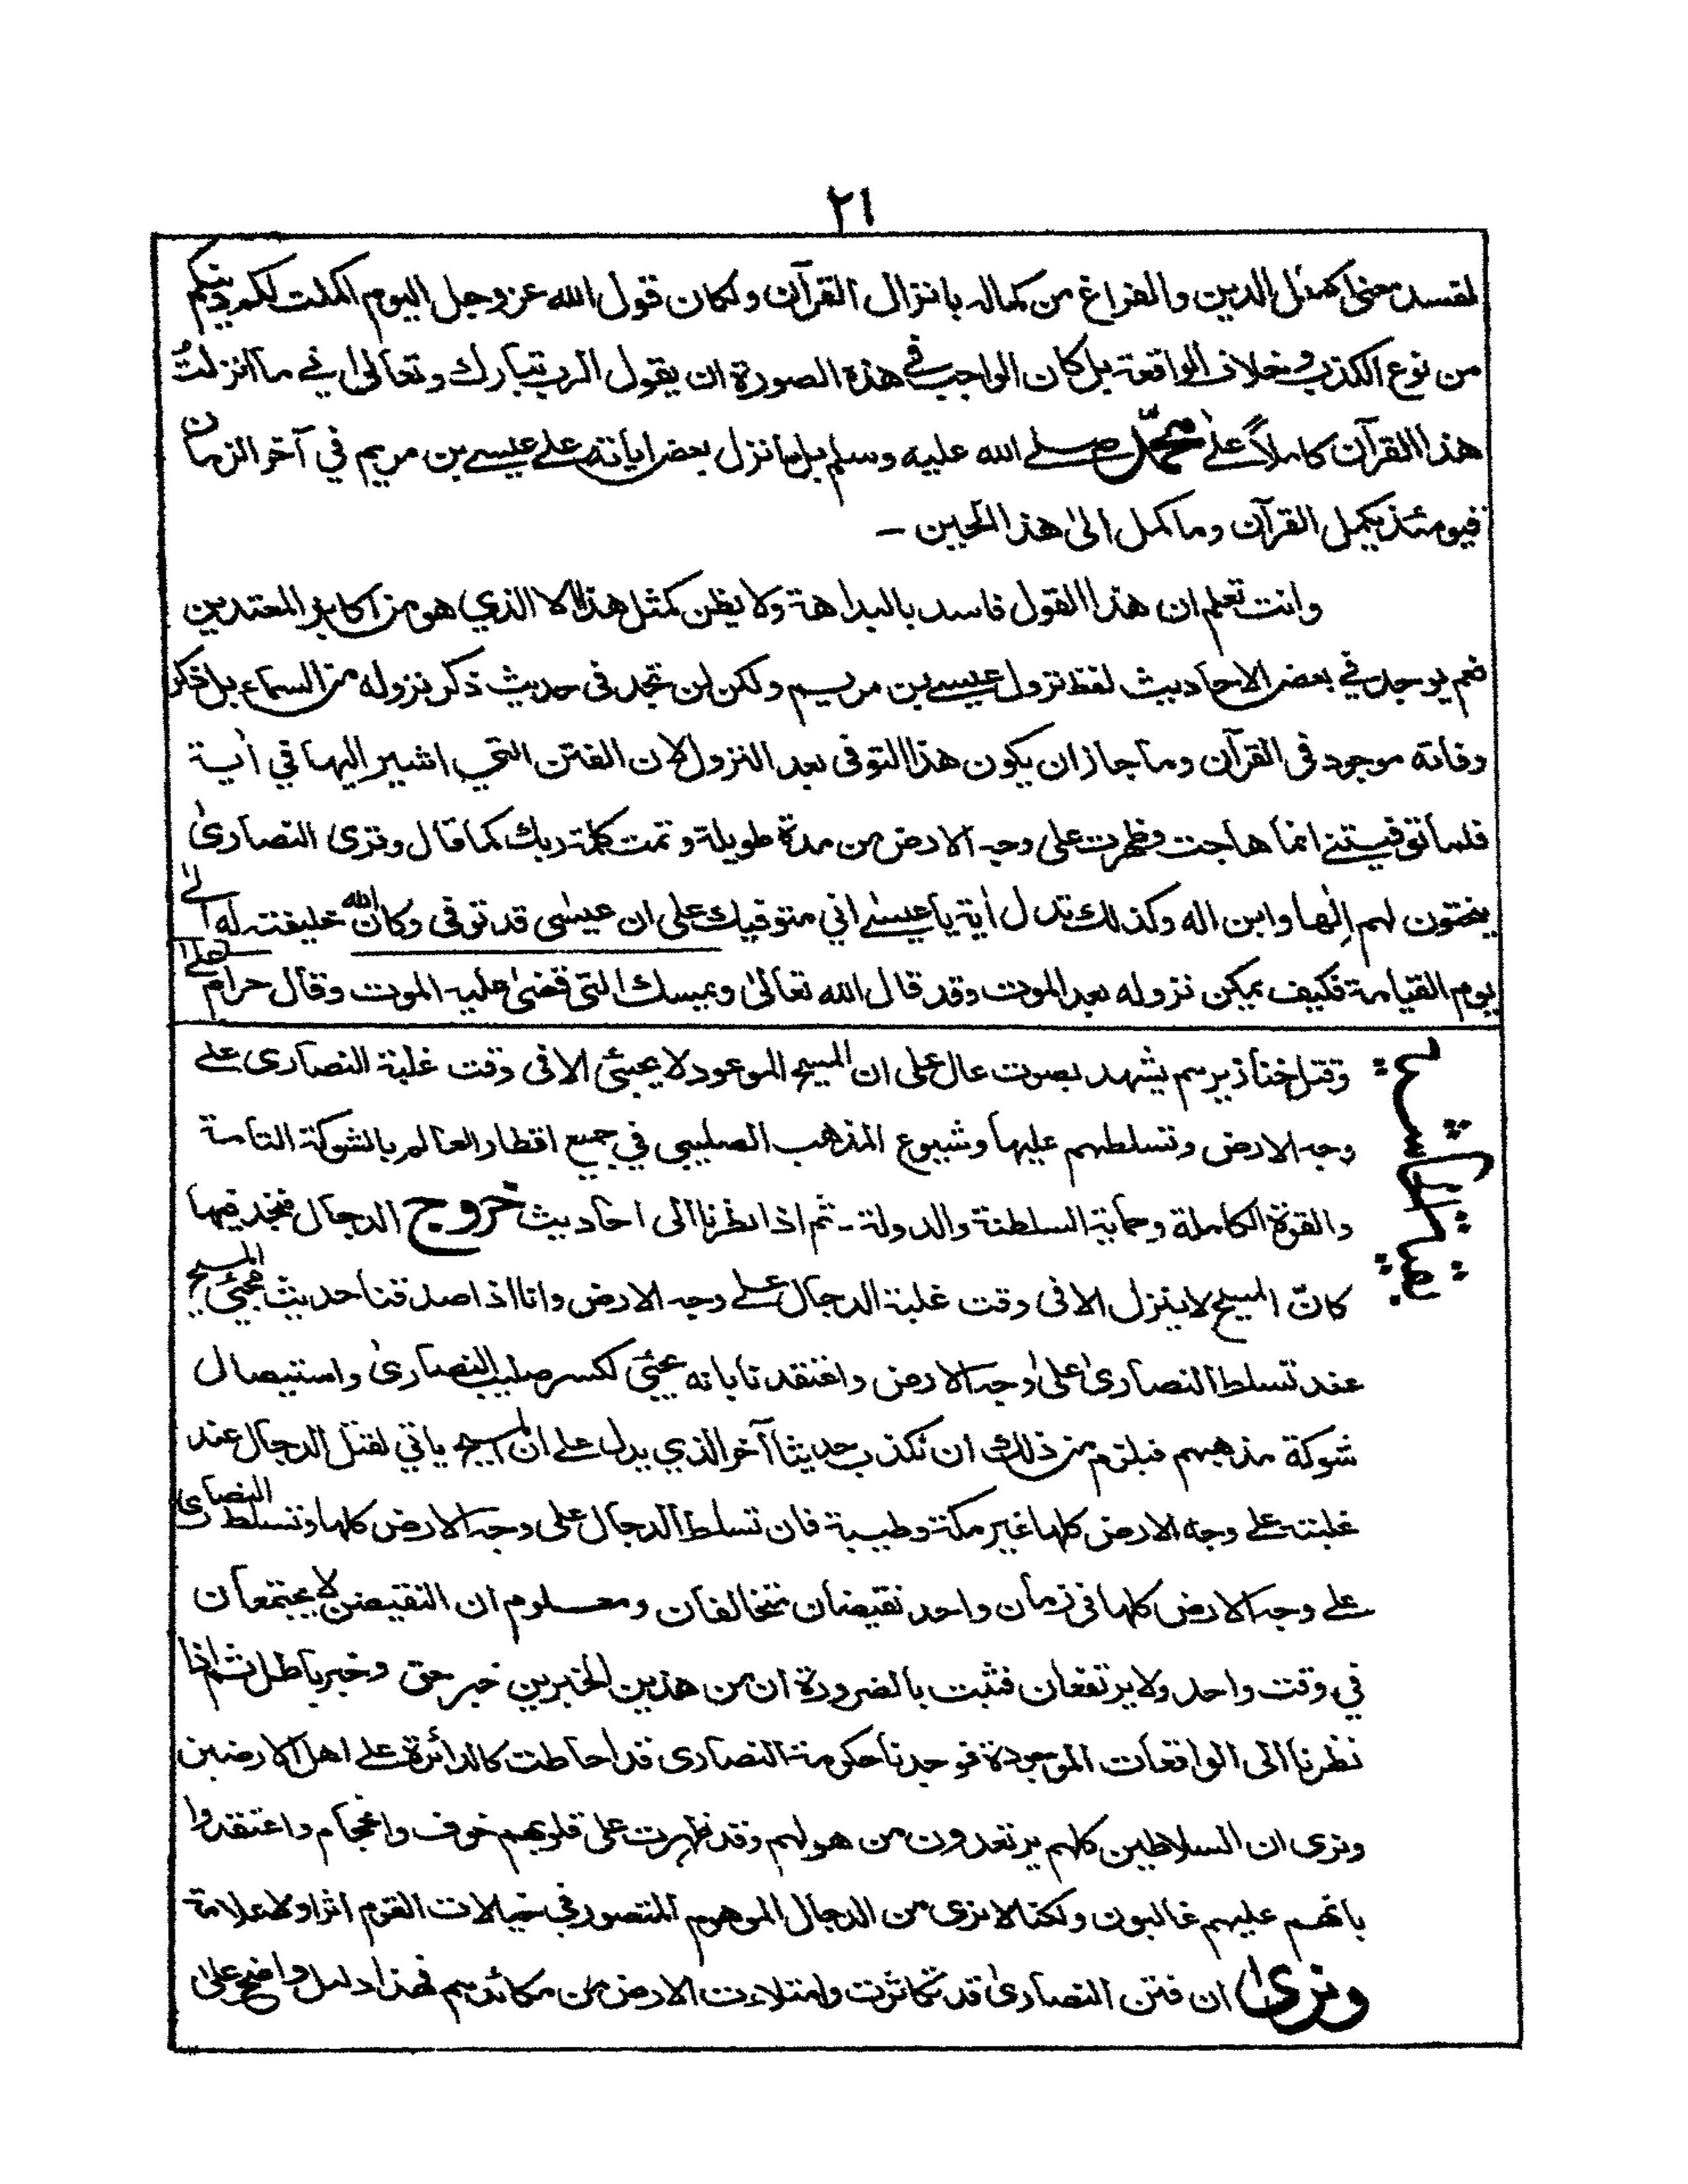 ٢١
لفسد معنى اكمال الدين والفراغ من كماله بانزال القرآن ولكان قول الله عز وجل اليوم اكملت لكم دينكم
من نوع الكذب وخلاف الواقعة بل كان الواجب في هذه الصورة ان يقول الرب تبارك وتعالى اني ما انزلتُ
هذا القرآن كاملاً على محمّد صلے الله عليه وسلم بل سانزل بعض اياته علے عيسے بن مريم في آخر الزمان
فيومئذ يكمل القرآن وما كمل الىٰ هذا الحين -
وانت تعلم ان هذا القول فاسد بالبداهة ولا يظن كمثل هذا الا الذي هو من اكابر المعتدين
نعم يوجد في بعض الاحاديث لفظ نزول عيسے بن مريم ولكن لن تجد فى حديث ذكر نزوله من السماء بل ذكر
وفاته موجود فى القرآن وما جاز ان يكون هذا التوفى بعد النزول لان الفتن التي اشير اليها في اٰية
فلما توفيتنے انما هاجت وظهرت على وجه الارض من مدة طويلة وتمت كلمة ربك كما قال وترى النصارىٰ
ينحتون لهم اِلٰها وابن اله وكذلك تدل اٰية يا عيسٰے اني متوفيك على ان عيسٰى قد توفى وكان الله خليفته له الىٰ
يوم القيامة فكيف يمكن نزوله بعد الموت وقد قال الله تعالىٰ ويمسك التي قضىٰ عليه الموت وقال حرام علےٰ
بقية الحاشية
وقتل خنازيرهم يشهد بصوت عال على ان المسيح الموعود لا يجيئ الا فى وقت غلبة النصارى علے
وجه الارض وتسلطهم عليها وشيوع المذهب الصليبي في جميع اقطار العالم بالشوكة التامة
والقوة الكاملة وحماية السلطنة والدولة - ثم اذا نظرنا الى احاديث خروج الدجال فنجد فيها
كانّ المسيح لا ينزل الا فى وقت غلبة الدجال علے وجه الارض وانا اذا صدقنا حديث مجيئ المسيح
عند تسلط النصارىٰ علىٰ وجه الارض واعتقدنا بانه يجيئ لكسر صليب النصارىٰ واستيصال
شوكة مذهبهم فيلزم من ذلك ان نكذب حديثا آخر الذي يدل علے ان المسيح ياتي لقتل الدجال عند
غلبته علے وجه الارض كلها غير مكة وطيبة فان تسلط الدجال على وجه الارض كلها وتسلط النصارى
علے وجه الارض كلها فى زمان واحد نقيضان متخالفان ومعلوم ان النقيضين لا يجتمعان
في وقت واحد ولا يرتفعان فثبت بالضرورة ان من هذين الخبرين خبر حق وخبر باطل ثم اذا
نظرنا الى الواقعات الموجودة فوجدنا حكومة النصارى قد احاطت كالدائرة علے اهل الارضين
ونرى ان السلاطين كلهم يرتعدون من هولهم وقد ظهرت على قلوبهم خوف واعتقدوا
بانهم عليهم غالبون ولكنا لا نرى من الدجال الموهوم المتصور في خيالات القوم اثرا ولا علامة
ونرىٰ ان فتن النصارىٰ قد تكاثرت وامتلاءت الارض من مكائدهم فهذا دليل واضح علىٰ